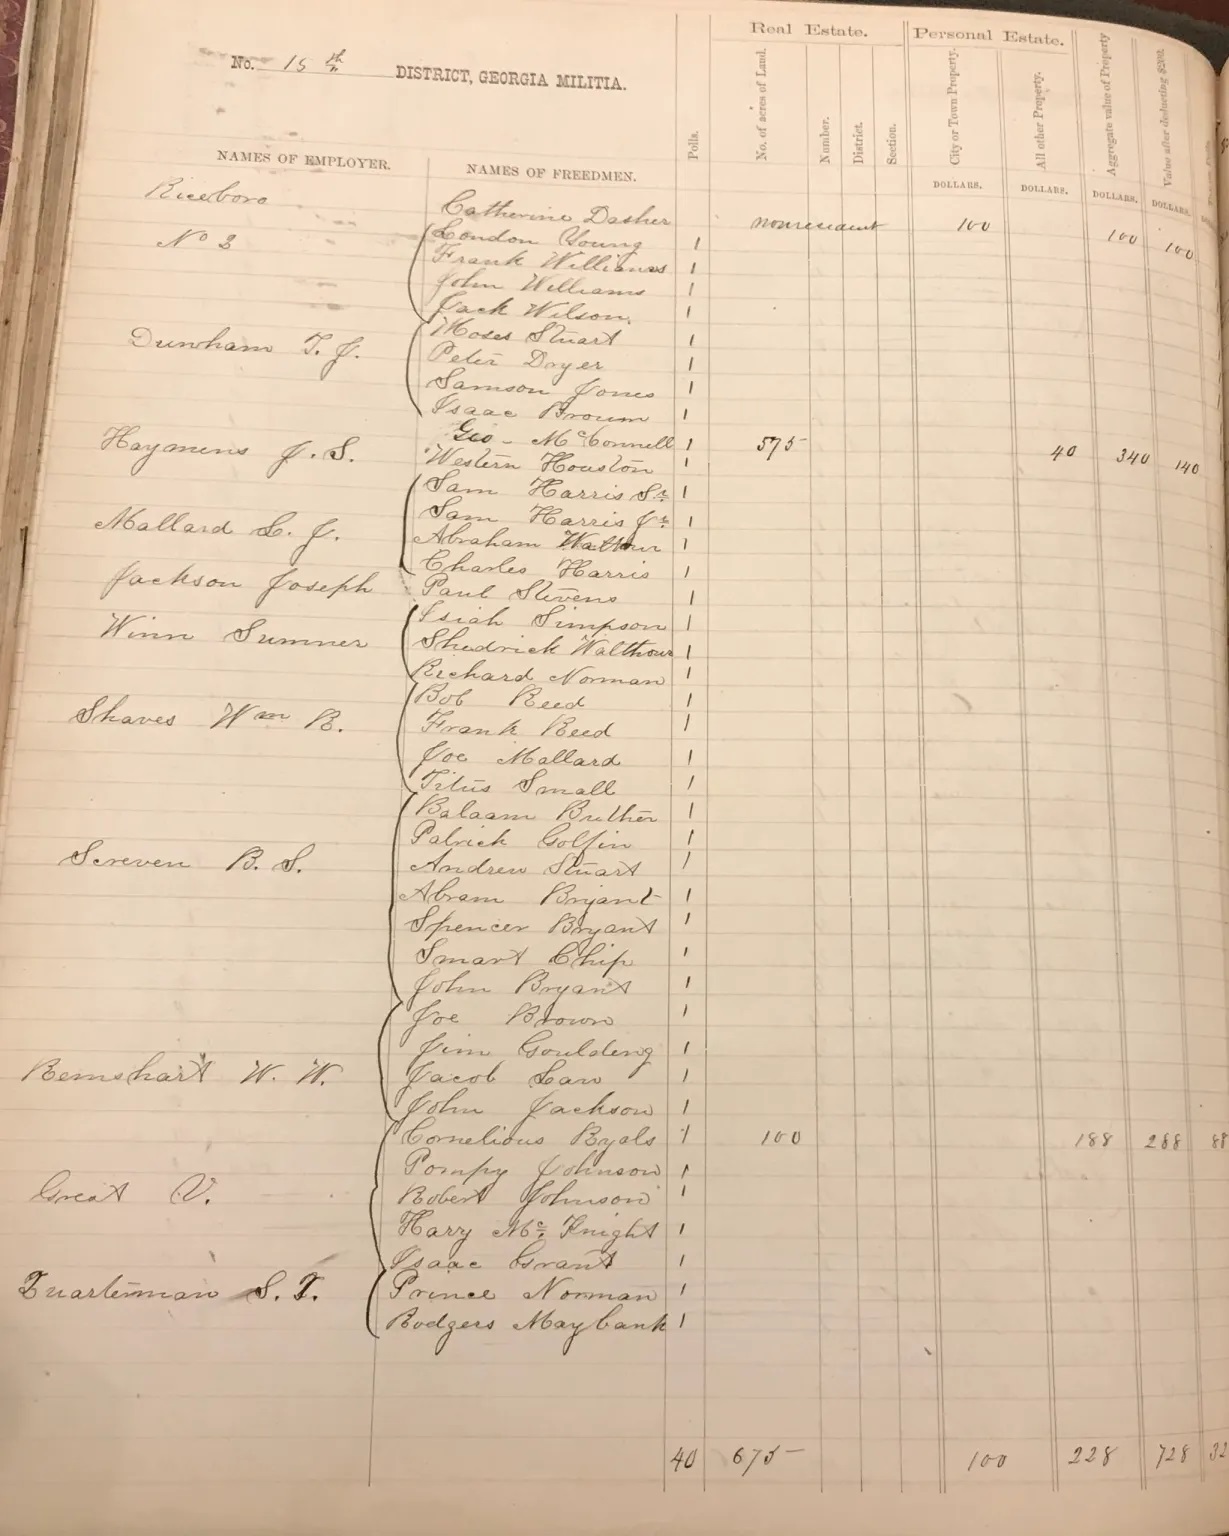 No. 15th DISTRICT, GEORGIA MILITIA.
Real Estate. Personal Estate.
NAMES OF EMPLOYER. NAMES OF FREEDMEN. Polls. No. of acres of Land. Number. District. Section. City or Town Property. All other Property. Aggregate value of Property Value after deducting $200.
DOLLARS. DOLLARS. DOLLARS. DOLLARS.
Riceboro Catherine Dasher nonresident 100 100 100
No 2 London Young 1
Frank Williams 1
John Williams 1
Jack Wilson 1
Moses Stuart 1
Dunham T. J. Peter Dryer 1
Samson Jones 1
Isaac Broum 1
Geo - McConnell 1 575 40 340 140
Haymens J. S. Western Houston 1
Sam Harris Sr 1
Sam Harris Jr 1
Mallard L. J. Abraham Walthour 1
Charles Harris 1
Jackson Joseph Paul Stevens 1
Isiah Simpson 1
Winn Sumner Shedrick Walthour 1
Richard Norman 1
Bob Reed 1
Shaves Wm R. Frank Reed 1
Joe Mallard 1
Titus Small 1
Balaam Bruther 1
Patrick Golfin 1
Screven B. S. Andrew Stuart 1
Abram Bryant 1
Spencer Bryant 1
Smart Chip 1
John Bryant 1
Joe Brown 1
Jim Goulding 1
Remshart W. W. Jacob Law 1
John Jackson 1
Cornelious Ryals 1 100 188 288 88
Pompy Johnson 1
Great V. Robert Johnson 1
Harry Mc Knight 1
Isaac Grant 1
Quarterman S. T. Prince Norman 1
Rodgers Maybank 1
40 675 100 228 728 32